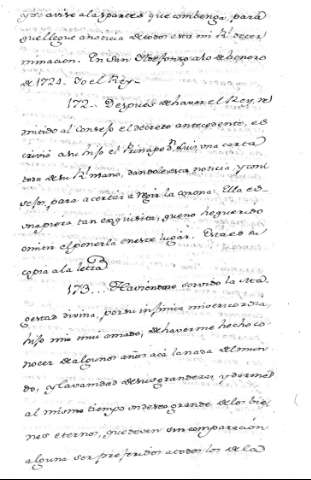 y os avise a las partes que combenga, para
que llegue a noticia de todos esta mi Rl. deter
minacion. En San Yldefonso a 10 de henero
de 1724. Yo el Rey.
172. Despues de haver el Rey, re
mitido al Consejo el decreto antecedente, es
crivió a su hijo el Principe Dn. Luis, una carta
de su Rl. mano, dandole esta noticia, y con
sejos, para acertar a regir la corona. Ella es
una pieza tan exquisita, que no he querido
omitir el ponerla en este lugar. Esta es su
copia a la letra
173. Haviendose servido la Ma
gestad divina, por su infinita misericordia,
hijo mio muy amado, de haverme hecho co
nocer de algunos años acá la nada del mun
do, y la vanidad de sus grandezas, y darme
al mismo tiempo un deseo grande de los bie
nes eternos, que deven sin comparación
alguna ser preferidos a todos los de la